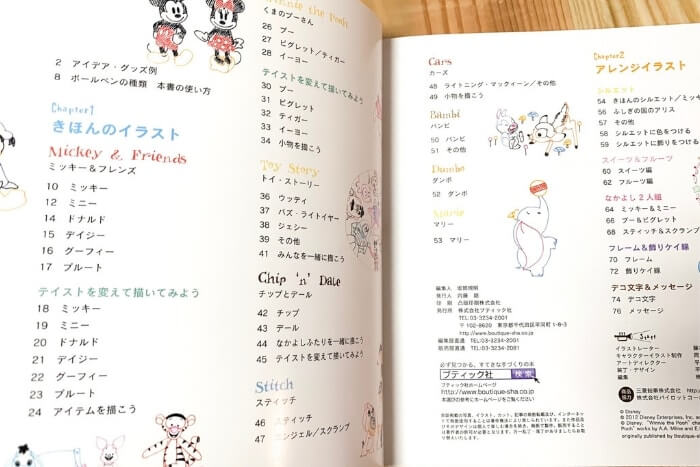 2 アイデア・グッズ例
8 ボールペンの種類 本書の使い方
Chapter1
きほんのイラスト
Mickey & Friends
ミッキー&フレンズ
10 ミッキー
12 ミニー
14 ドナルド
15 デイジー
16 グーフィー
17 プルート
テイストを変えて描いてみよう
18 ミッキー
19 ミニー
20 ドナルド
21 デイジー
22 グーフィー
23 プルート
24 アイテムを描こう
Winnie the Pooh
くまのプーさん
26 プー
27 ピグレット/ティガー
28 イーヨー
テイストを変えて描いてみよう
30 プー
31 ピグレット
32 ティガー
33 イーヨー
34 小物を描こう
Toy Story
トイ・ストーリー
36 ウッディ
37 バズ・ライトイヤー
38 ジェシー
39 その他
41 みんなを一緒に描こう
Chip 'n' Dale
チップとデール
42 チップ
43 デール
44 なかよしふたりを一緒に描こう
45 テイストを変えて描いてみよう
Stitch
スティッチ
46 スティッチ
47 エンジェル/スクランプ
Cars
カーズ
48 ライトニング・マックィーン/その他
49 小物を描こう
Bambi
バンビ
50 バンビ
51 その他
Dumbo
ダンボ
52 ダンボ
Marie
マリー
53 マリー
編集人
発行人 内藤 朗
印刷 凸版印刷株式会社
発行所 株式会社ブティック社
TEL:03-3234-2001
〒102-8620 東京都千代田区平河町1-8-3
http://www.boutique-sha.co.jp
編集部直通 TEL:03-3234-2071
販売部直通 TEL:03-3234-2081
必ず見つかる、すてきな手づくりの本
ブティック社 検索
ブティック社ホームページ
http://www.boutique-sha.co.jp
本選びの参考にホームページをご覧ください
Chapter2
アレンジイラスト
シルエット
54 きほんのシルエット/ミッキ
56 ふしぎの国のアリス
57 その他
58 シルエットに色をつける
59 シルエットに飾りをつける
スイーツ&フルーツ
60 スイーツ編
62 フルーツ編
なかよし2人組
64 ミッキー&ミニー
66 プー&ピグレット
68 スティッチ&スクランプ
フレーム&飾りケイ線
70 フレーム
72 飾りケイ線
デコ文字&メッセージ
74 デコ文字
76 メッセージ
Staff
イラストレーター
キャラクターイラスト制作
アートディレクター
装丁・デザイン
編集
商品協力
三菱鉛筆株式会社
株式会社パイロットコー
© Disney
© 2012 Disney Enterprises, Inc.
© Disney. "Winnie the Pooh" cha
Pooh" works by A.A. Milne and E.
originally published by boutique-s